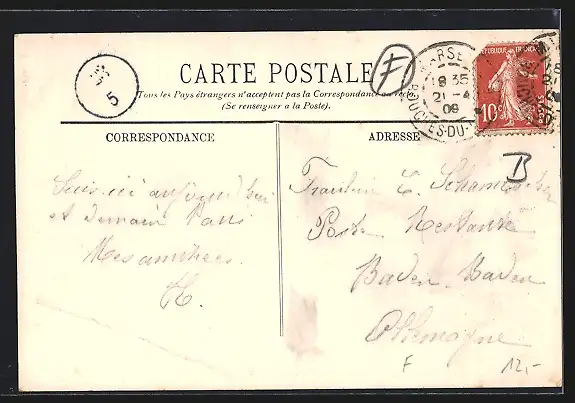 5
CARTE POSTALE
F
Tous les Pays étrangers n'acceptent pas la Correspondance au recto
(Se renseigner a la Poste).
18 35
21 - 4
09
BOUCHES-DU-
REPUBLIQUE FRANÇAISE
10 c
POSTES
CORRESPONDANCE
ADRESSE
B
Suis ici aujourd'hui
et demain Paris
Mes amitiées
H.
Fraülein E.
Poste Restante
Baden-Baden
Allemagne
F
12,-